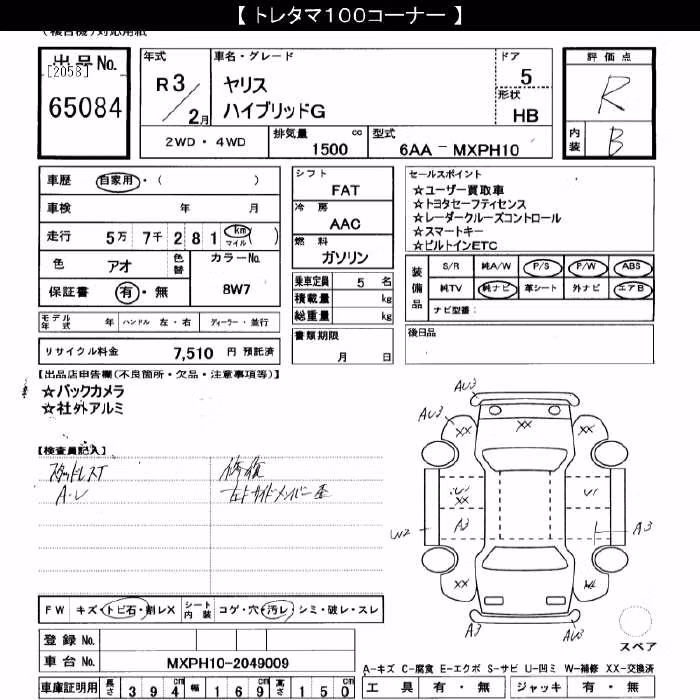 【 トレタマ100コーナー 】
(複合機)対応用紙
出品No.
[2058]
65084
年式
R3/2月
車名・グレード
ヤリス
ハイブリッドG
ドア
5
形状
HB
評価点
R
内装
B
2WD・4WD
排気量 1500 cc
型式 6AA - MXPH10
車歴 自家用・( )
車検 年 月
走行 5万 7千 2 8 1 km マイル ( )
色 アオ
色替
カラーNo. 8W7
保証書 有・無
シフト
FAT
冷房
AAC
燃料
ガソリン
乗車定員 5 名
積載量 kg
総重量 kg
セールスポイント
☆ユーザー買取車
☆トヨタセーフティセンス
☆レーダークルーズコントロール
☆スマートキー
☆ビルトインETC
装備品
S/R 純A/W P/S P/W ABS
純TV 純ナビ 革シート 外ナビ エアB
ナビ型番:
モデル年式 年 ハンドル 左・右 ディーラー・並行
リサイクル料金 7,510 円 預託済
書類期限
月 日
後日品
【出品店申告欄(不良箇所・欠品・注意事項等)】
☆バックカメラ
☆社外アルミ
【検査員記入】
スタッドレスT
A・U
修復
左トサイドメンバー歪
AU3
AU3
XX
XX
XX
U1
XX
A3
W2
U1
A3
XX
A3
AU3
スペア
FW キズ・トビ石・割レX
シート内装 コゲ・穴・汚レ・シミ・破レ・スレ
登録No.
車台No. MXPH10-2049009
車庫証明用 長さ 394cm 幅 169cm 高さ 150cm
A-キズ C-腐食 E-エクボ S-サビ U-凹ミ W-補修 XX-交換済
工具 有・無 ジャッキ 有・無